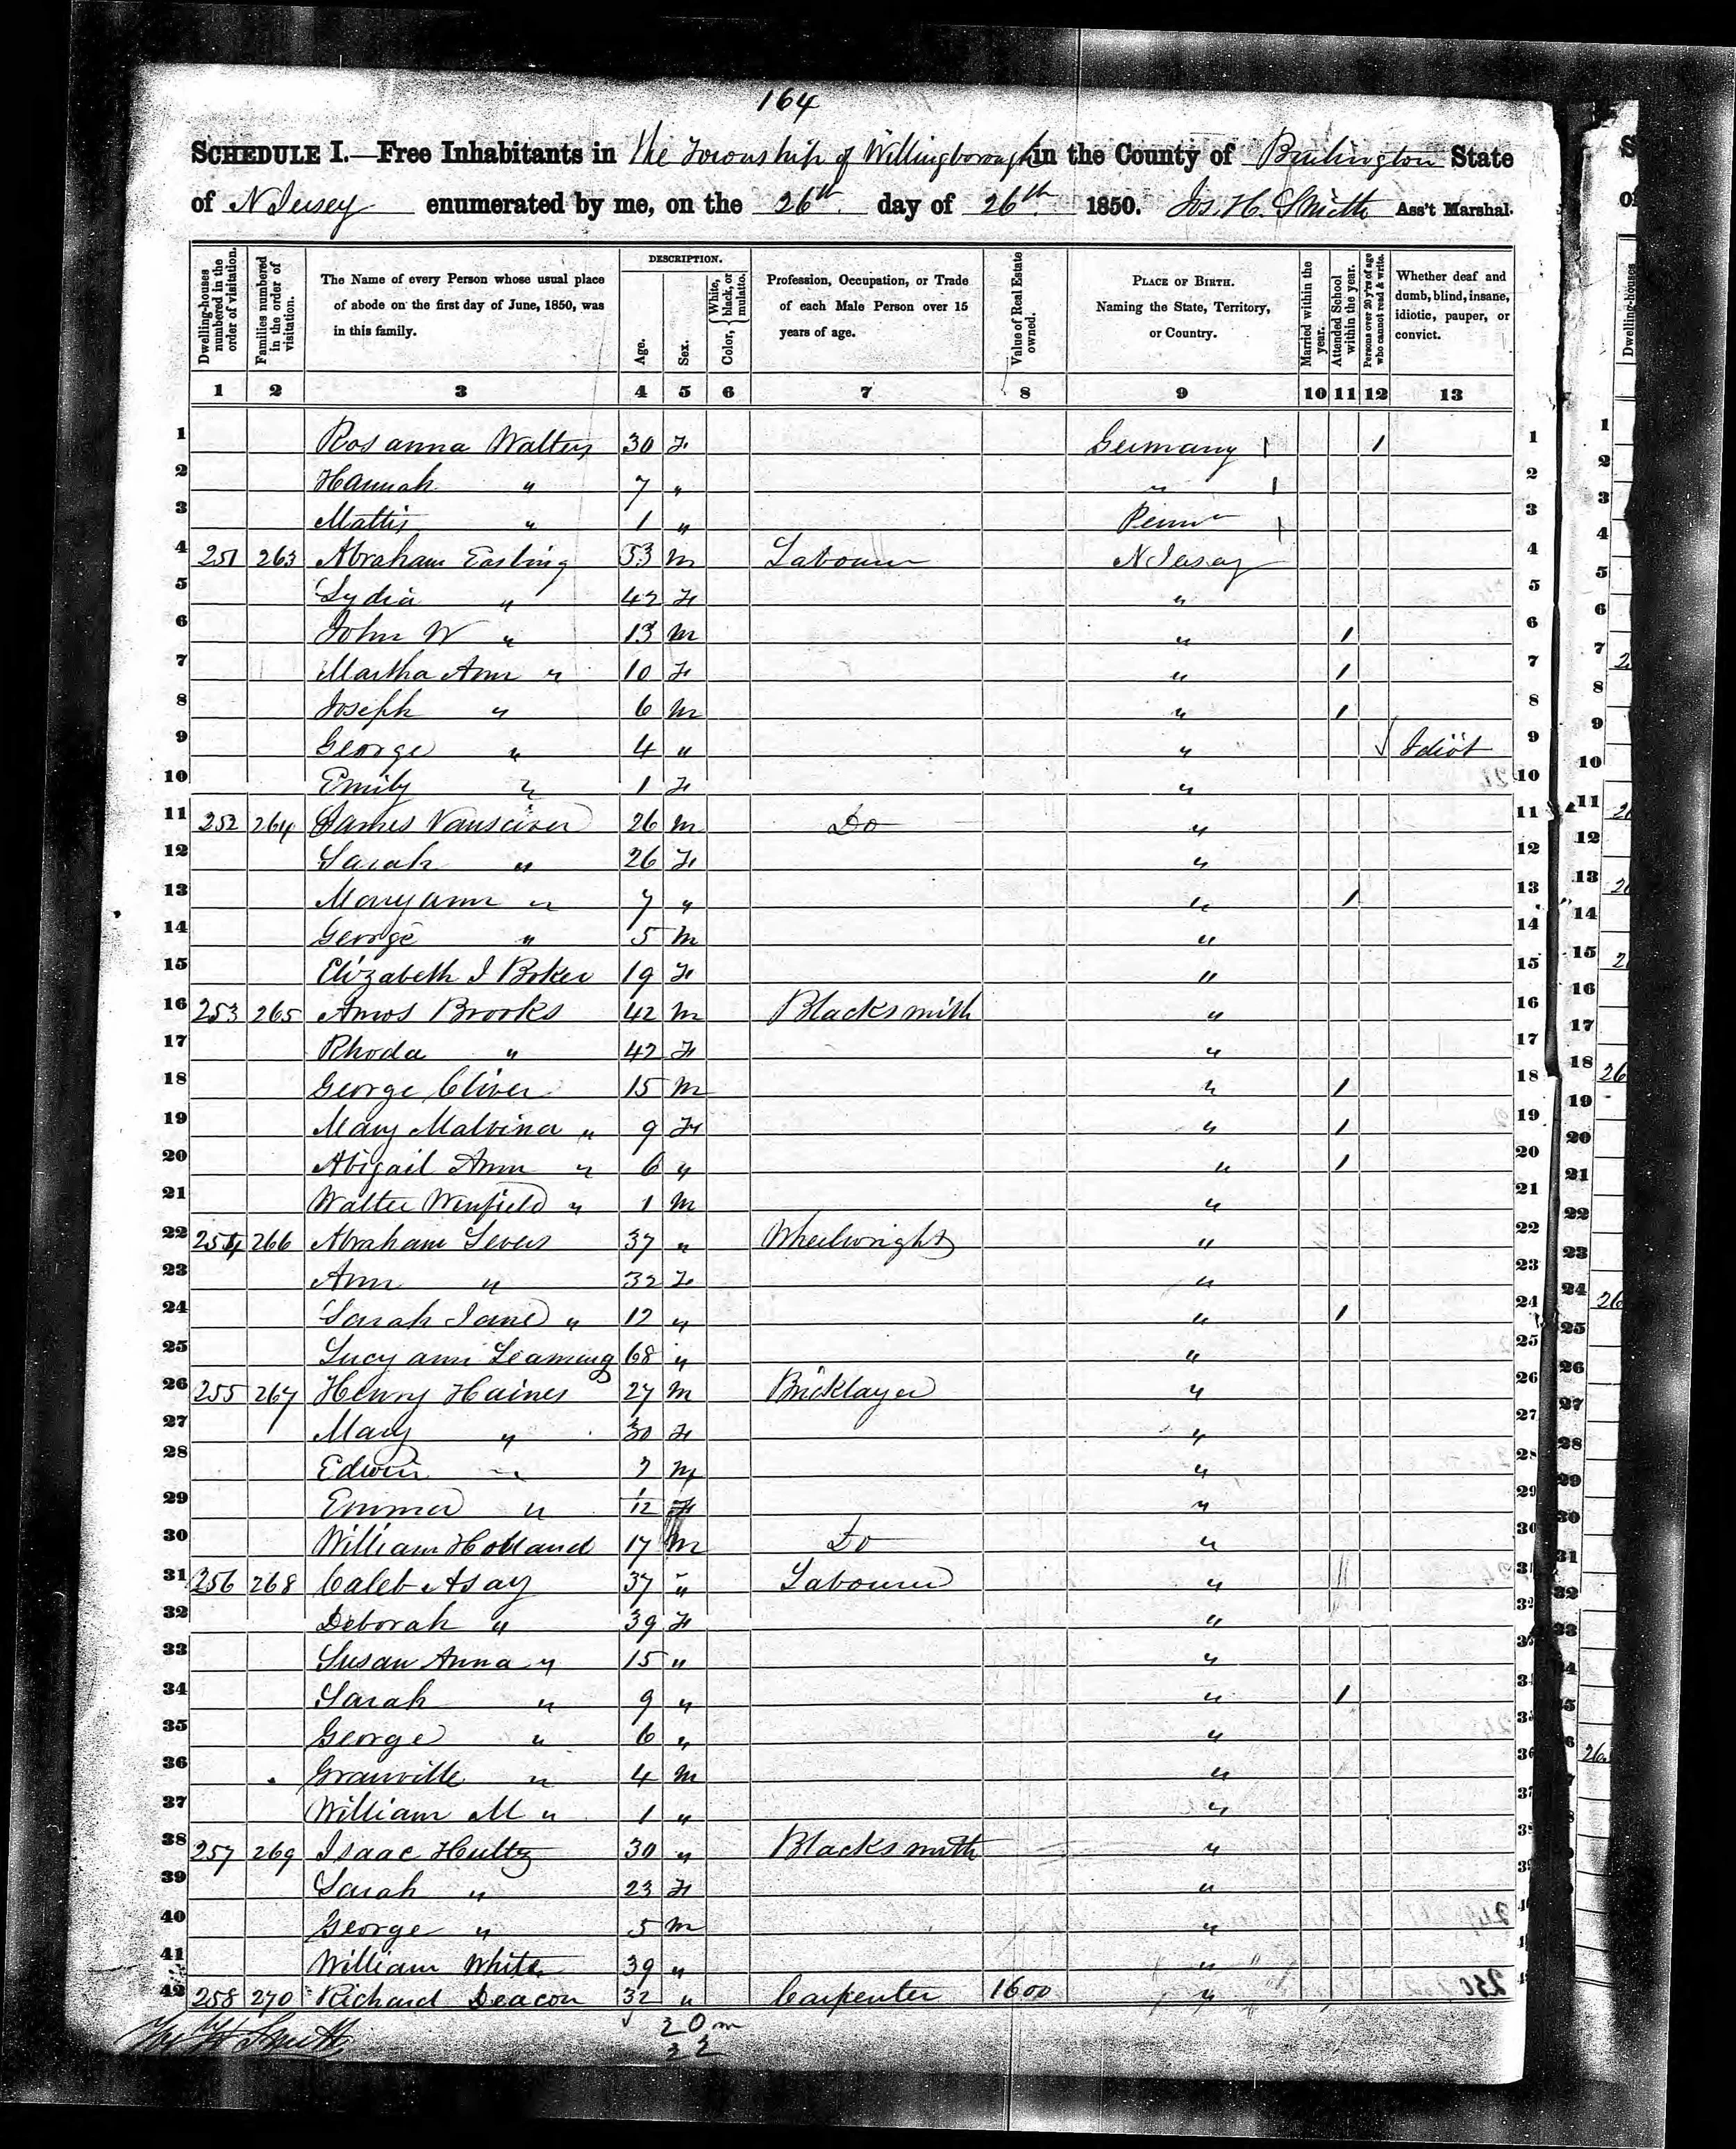 164
SCHEDULE I.—Free Inhabitants in the Township of Willingborough in the County of Burlington State
of N Jersey enumerated by me, on the 26th day of 26th 1850. Jos. H. Smith Ass't Marshal.
Dwelling-houses numbered in the order of visitation.
Families numbered in the order of visitation.
The Name of every Person whose usual place of abode on the first day of June, 1850, was in this family.
DESCRIPTION.
Age.
Sex.
Color, White, black, or mulatto.
Profession, Occupation, or Trade of each Male Person over 15 years of age.
Value of Real Estate owned.
PLACE OF BIRTH. Naming the State, Territory, or Country.
Married within the year.
Attended School within the year.
Persons over 20 y'rs of age who cannot read & write.
Whether deaf and dumb, blind, insane, idiotic, pauper, or convict.
1 2 3 4 5 6 7 8 9 10 11 12 13
1 Rosanna Walters 30 F Germany 1 1
2 Hannah " 7 " " 1 2
3 " 1 " Penn 1 3
4 251 263 Abraham Easling 53 M Labourer N Jersey 4
5 Lydia " 42 F " 5
6 John W " 13 M " 1 6
7 Martha Ann " 10 F " 1 7
8 Joseph " 6 M " 1 8
9 George " 4 " " Idiot 9
10 Emily " 1 F " 10
11 252 264 James Vansciver 26 M Do " 11
12 Sarah " 26 F " 12
13 Mary ann " 7 " " 1 13
14 George " 5 M " 14
15 Elizabeth J Boker 19 F " 15
16 253 265 Amos Brooks 42 M Blacksmith " 16
17 Rhoda " 42 F " 17
18 George Cliver 15 M " 1 18
19 Mary Malvina " 9 F " 1 19
20 Abigail Ann " 6 " " 1 20
21 Walter Winfield " 1 M " 21
22 254 266 Abraham Severs 37 " Wheelwright " 22
23 Ann " 32 F " 23
24 Sarah Jane " 12 " " 1 24
25 Lucy ann Leaming 68 " " 25
26 255 267 Henry Haines 27 M Bricklayer " 26
27 Mary " 30 F " 27
28 Edwin " M " 28
29 Emma " 1/12 F " 29
30 William Holland 17 M Do " 30
31 256 268 Caleb Asay 37 " Labourer " 31
32 Deborah " 39 F " 32
33 Susan Anna " 15 " "
34 Sarah " 9 " " 1
35 George " 6 " "
36 Granville " 4 M "
37 William M " 1 " "
38 257 269 Isaac Hultz 30 " Blacksmith "
39 Sarah " 23 F "
40 George " 5 M "
41 William White 39 " "
42 258 270 Richard Deacon 32 " Carpenter 1600 "
20 m
22
Jos H Smith